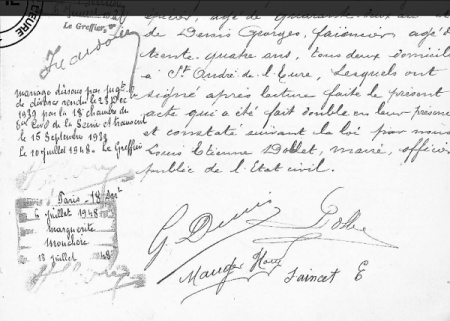 L'EURE
Le Greffier
mariage dissous par jugt
de divorce rendu le 28 Dec
1939 par la 18e chambre du
Civil de la Seine et transcrit
le 15 Septembre
le 10 juillet 1948. Le Greffier
Paris - 18 Arrt
6 juillet 1948
marguerite
13 juillet 48
agé de quarante
de Denis Georges, agé de
trente quatre ans, tous deux domiciliés
à St André de l'Eure, Lesquels ont
signé après lecture faite le présent
acte qui a été fait double en leur présence
et constaté suivant la loi par nous
Louis Etienne maire, officier
public de l'Etat civil.
G Denis
Mauger
E